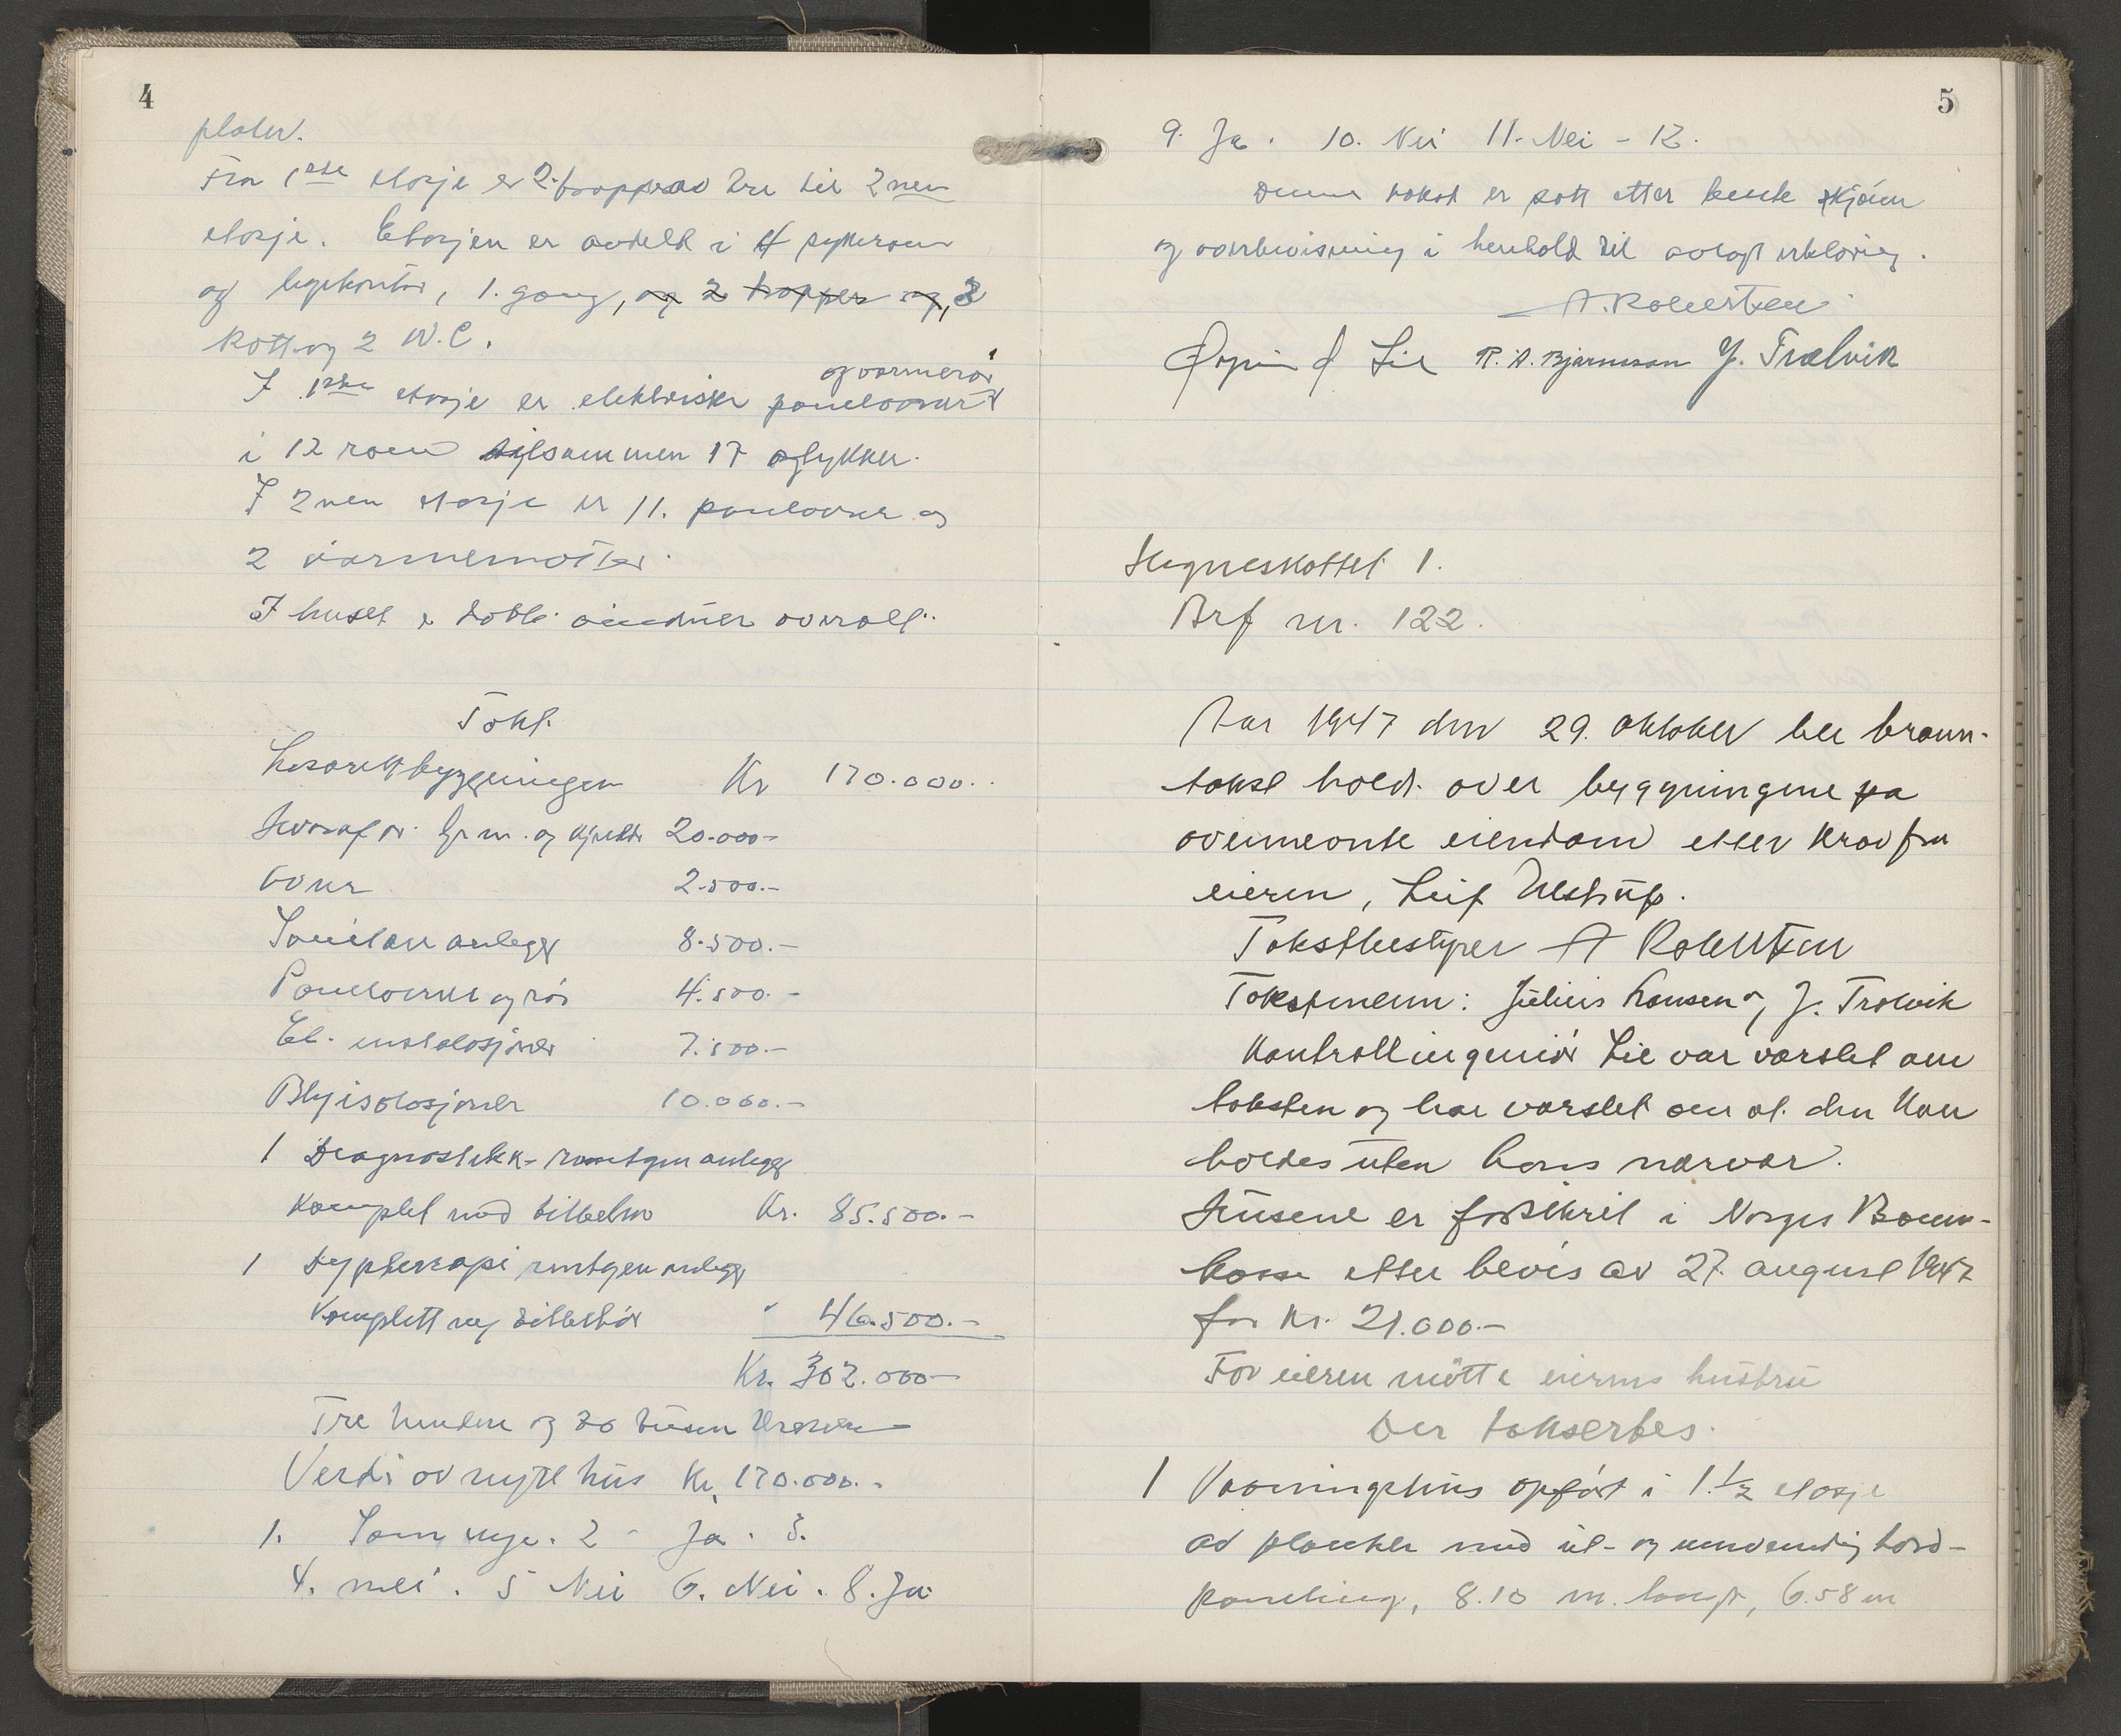 4
plater.
Fra 1ste etasje er 2 trapper av tre til 2nen
etasje. Etasjen er avdelt i 4 sykerom
og legekontor, 1. gang, og 2 trapper og, 3
kott og 2 W.C.
I 1ste etasje er elektriske panelovner og varmerör
i 12 rom tilsammen 17 stykker.
I 2nen etasje er 11. panelovner og
2 varmematter.
I huset er doble vinduer overalt.
Takst.
Lasarettbyggningen Kr 170.000..
Hvorav for Gr.m. og kjeller 20.000-
Ovner 2.500.-
Sanitær anlegg 8.500.-
Panelovner og rör 4.500.-
El. instalasjoner 7.500.-
Blyisolasjoner 10.000.-
1 Diagnostikk-røntgen anlegg
komplet med tilbehør Kr. 85.500.-
1 Dypterapi røntgen anlegg
Komplett m tilbehör " 46.500.-
Kr. 302.000-
Tre hundre og to tusen kroner
Verdi av nytt hus Kr. 170.000.-
1. Som nye. 2 - Ja. 3.
4. nei. 5 Nei 6. Nei. 8. Ja
5
9. Ja. 10. Nei 11. Nei - 12.
Denne takst er satt etter beste skjönn
og overbevisning i henhold til avlagt erklæring.
A. Robertsen
Lie R. A. Bjørnsson J. Trælvik
Hegneskottet 1.
Brf nr. 122.
Aar 1947 den 29. oktober ble brann-
takst holdt over byggningene pa
ovennevnte eiendom etter krav fra
eieren, Leif Ulstrup.
Takstbestyrer A Robertsen
Takstmenn: Julius Hansen og J. Trælvik
Kontrollingeniör Lie var varslet om
taksten og har varslet om at den kan
holdes uten hans nærvær.
Husene er forsikret i Norges Brann-
kasse etter bevis av 27. august 1947
for kr. 21.000.-
For eieren mötte eierens hustru
Der taksertes.
1 Vaaningshus opfört i 1.1/2 etasje
av planker med ut- og innvendig bord-
paneling, 8.10 m. langt, 6.58 m